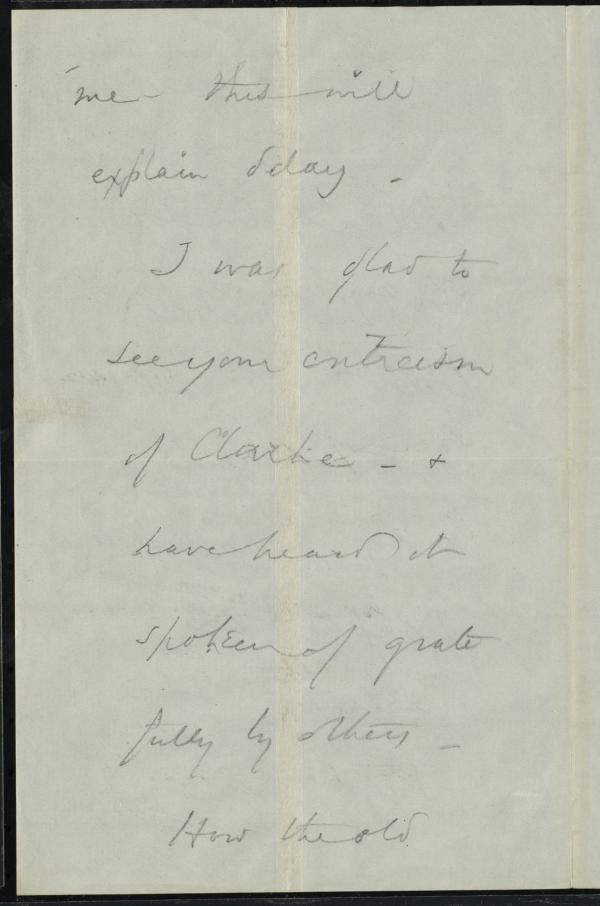 me - this will
explain delay -
I was glad to
see your criticism
of Clarke - +
have heard it
spoken of grate
fully by others -
How the old